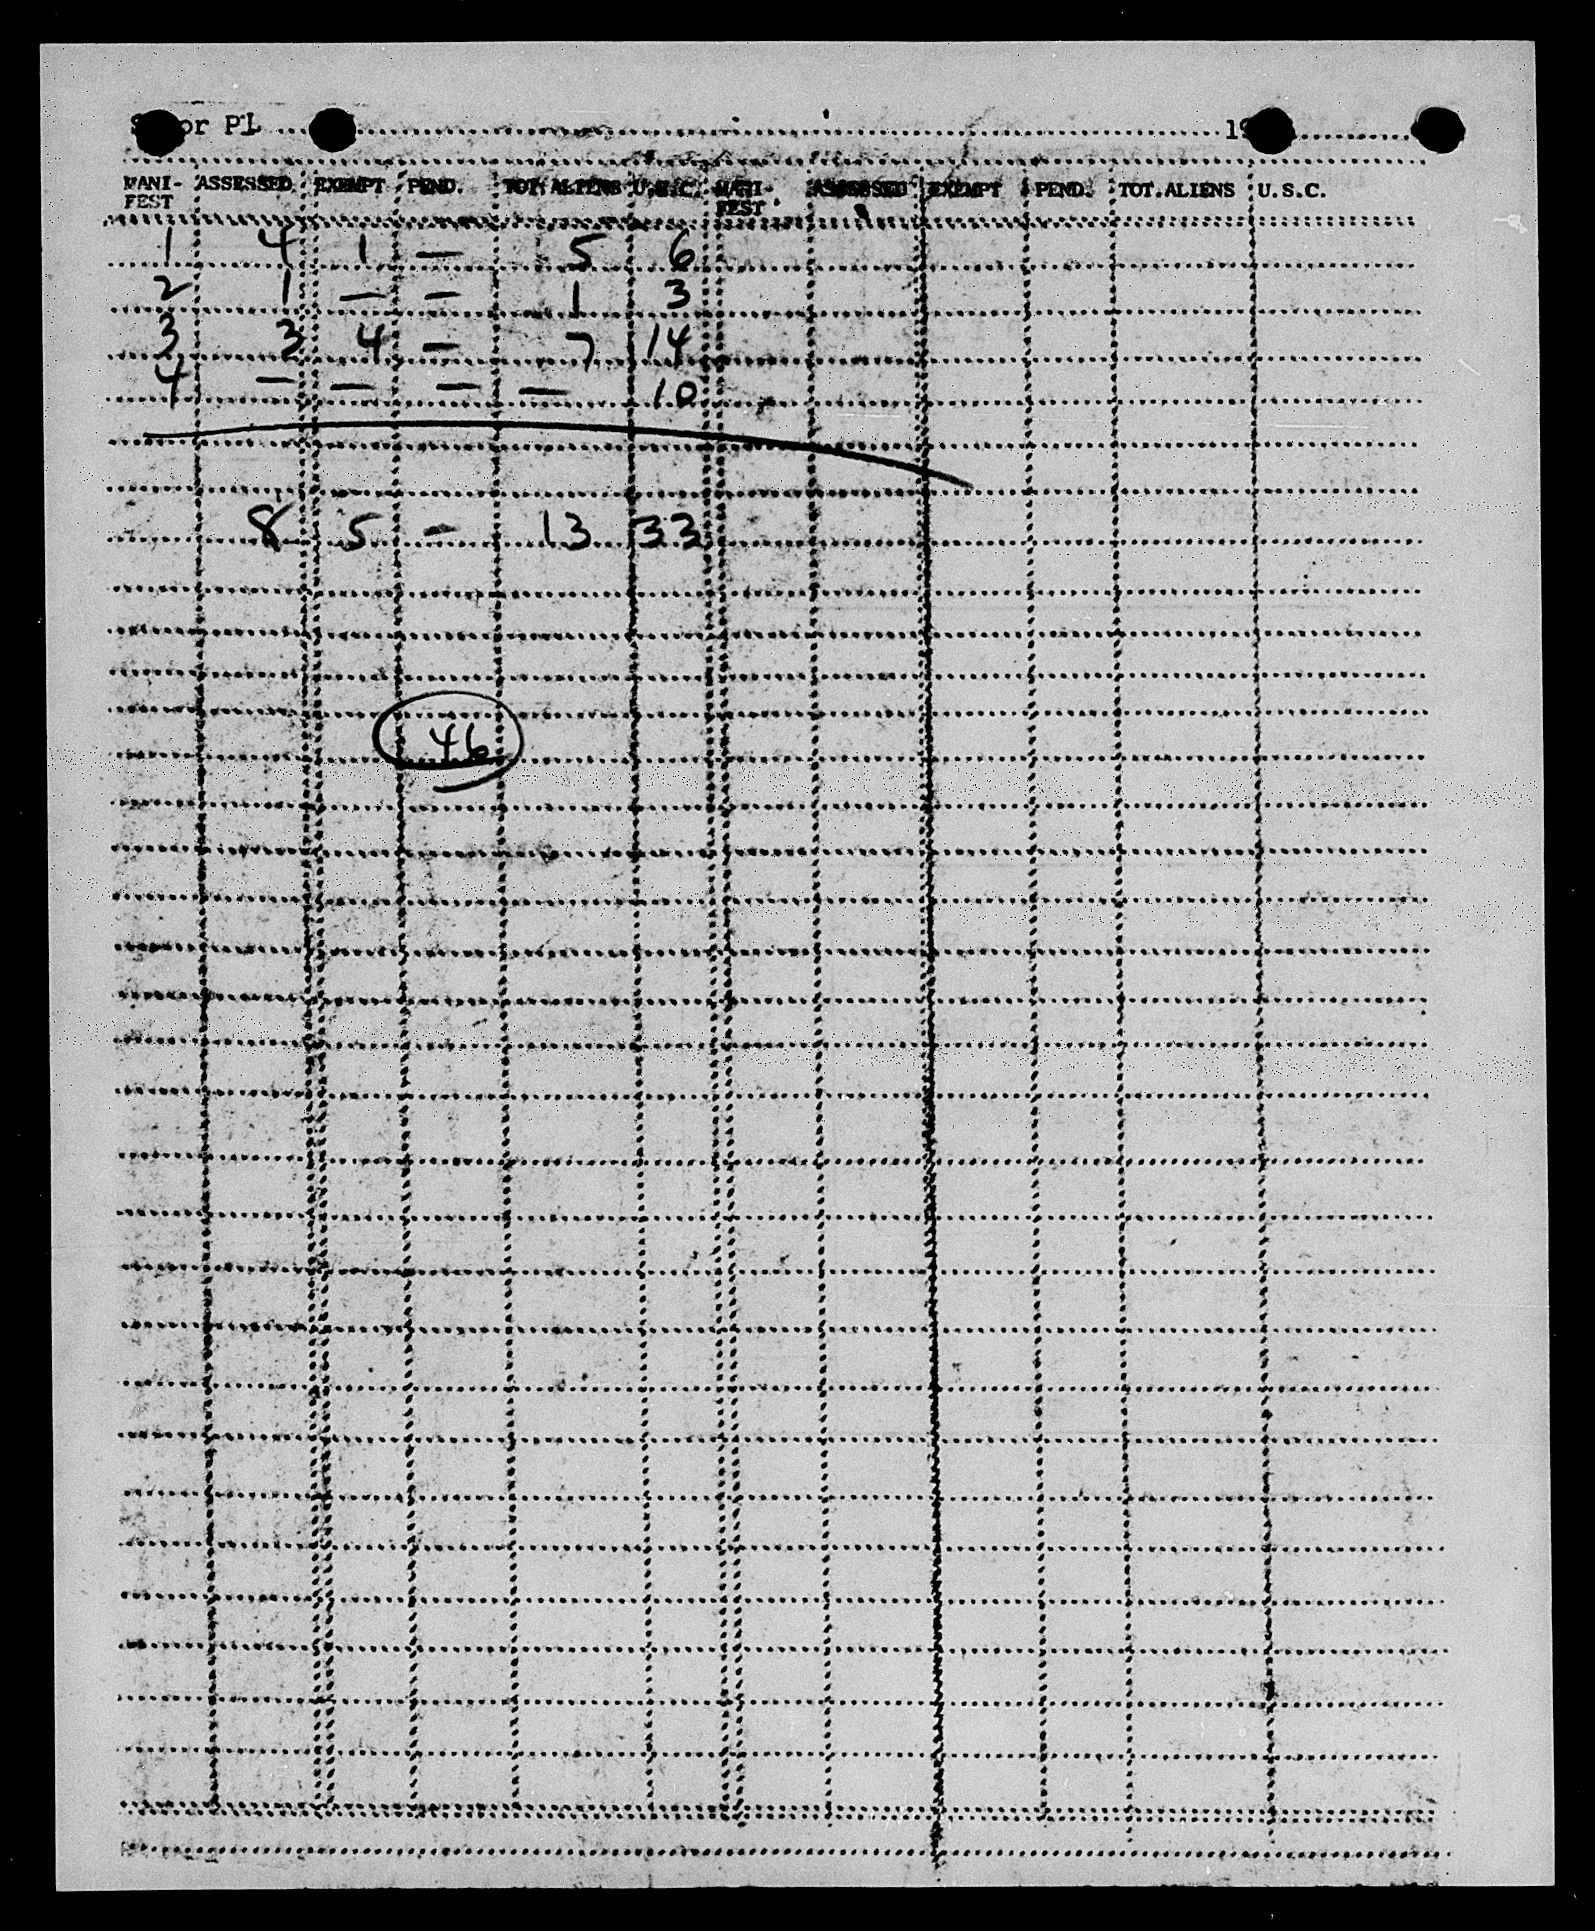 or PL 19
MANI- ASSESSED EXEMPT PEND. TOT. ALIENS U.S.C. MANI- ASSESSED EXEMPT PEND. TOT. ALIENS U.S.C.
FEST FEST
1 4 1 — 5 6
2 1 — — 1 3
3 3 4 — 7 14
4 — — — — 10
8 5 — 13 33
46